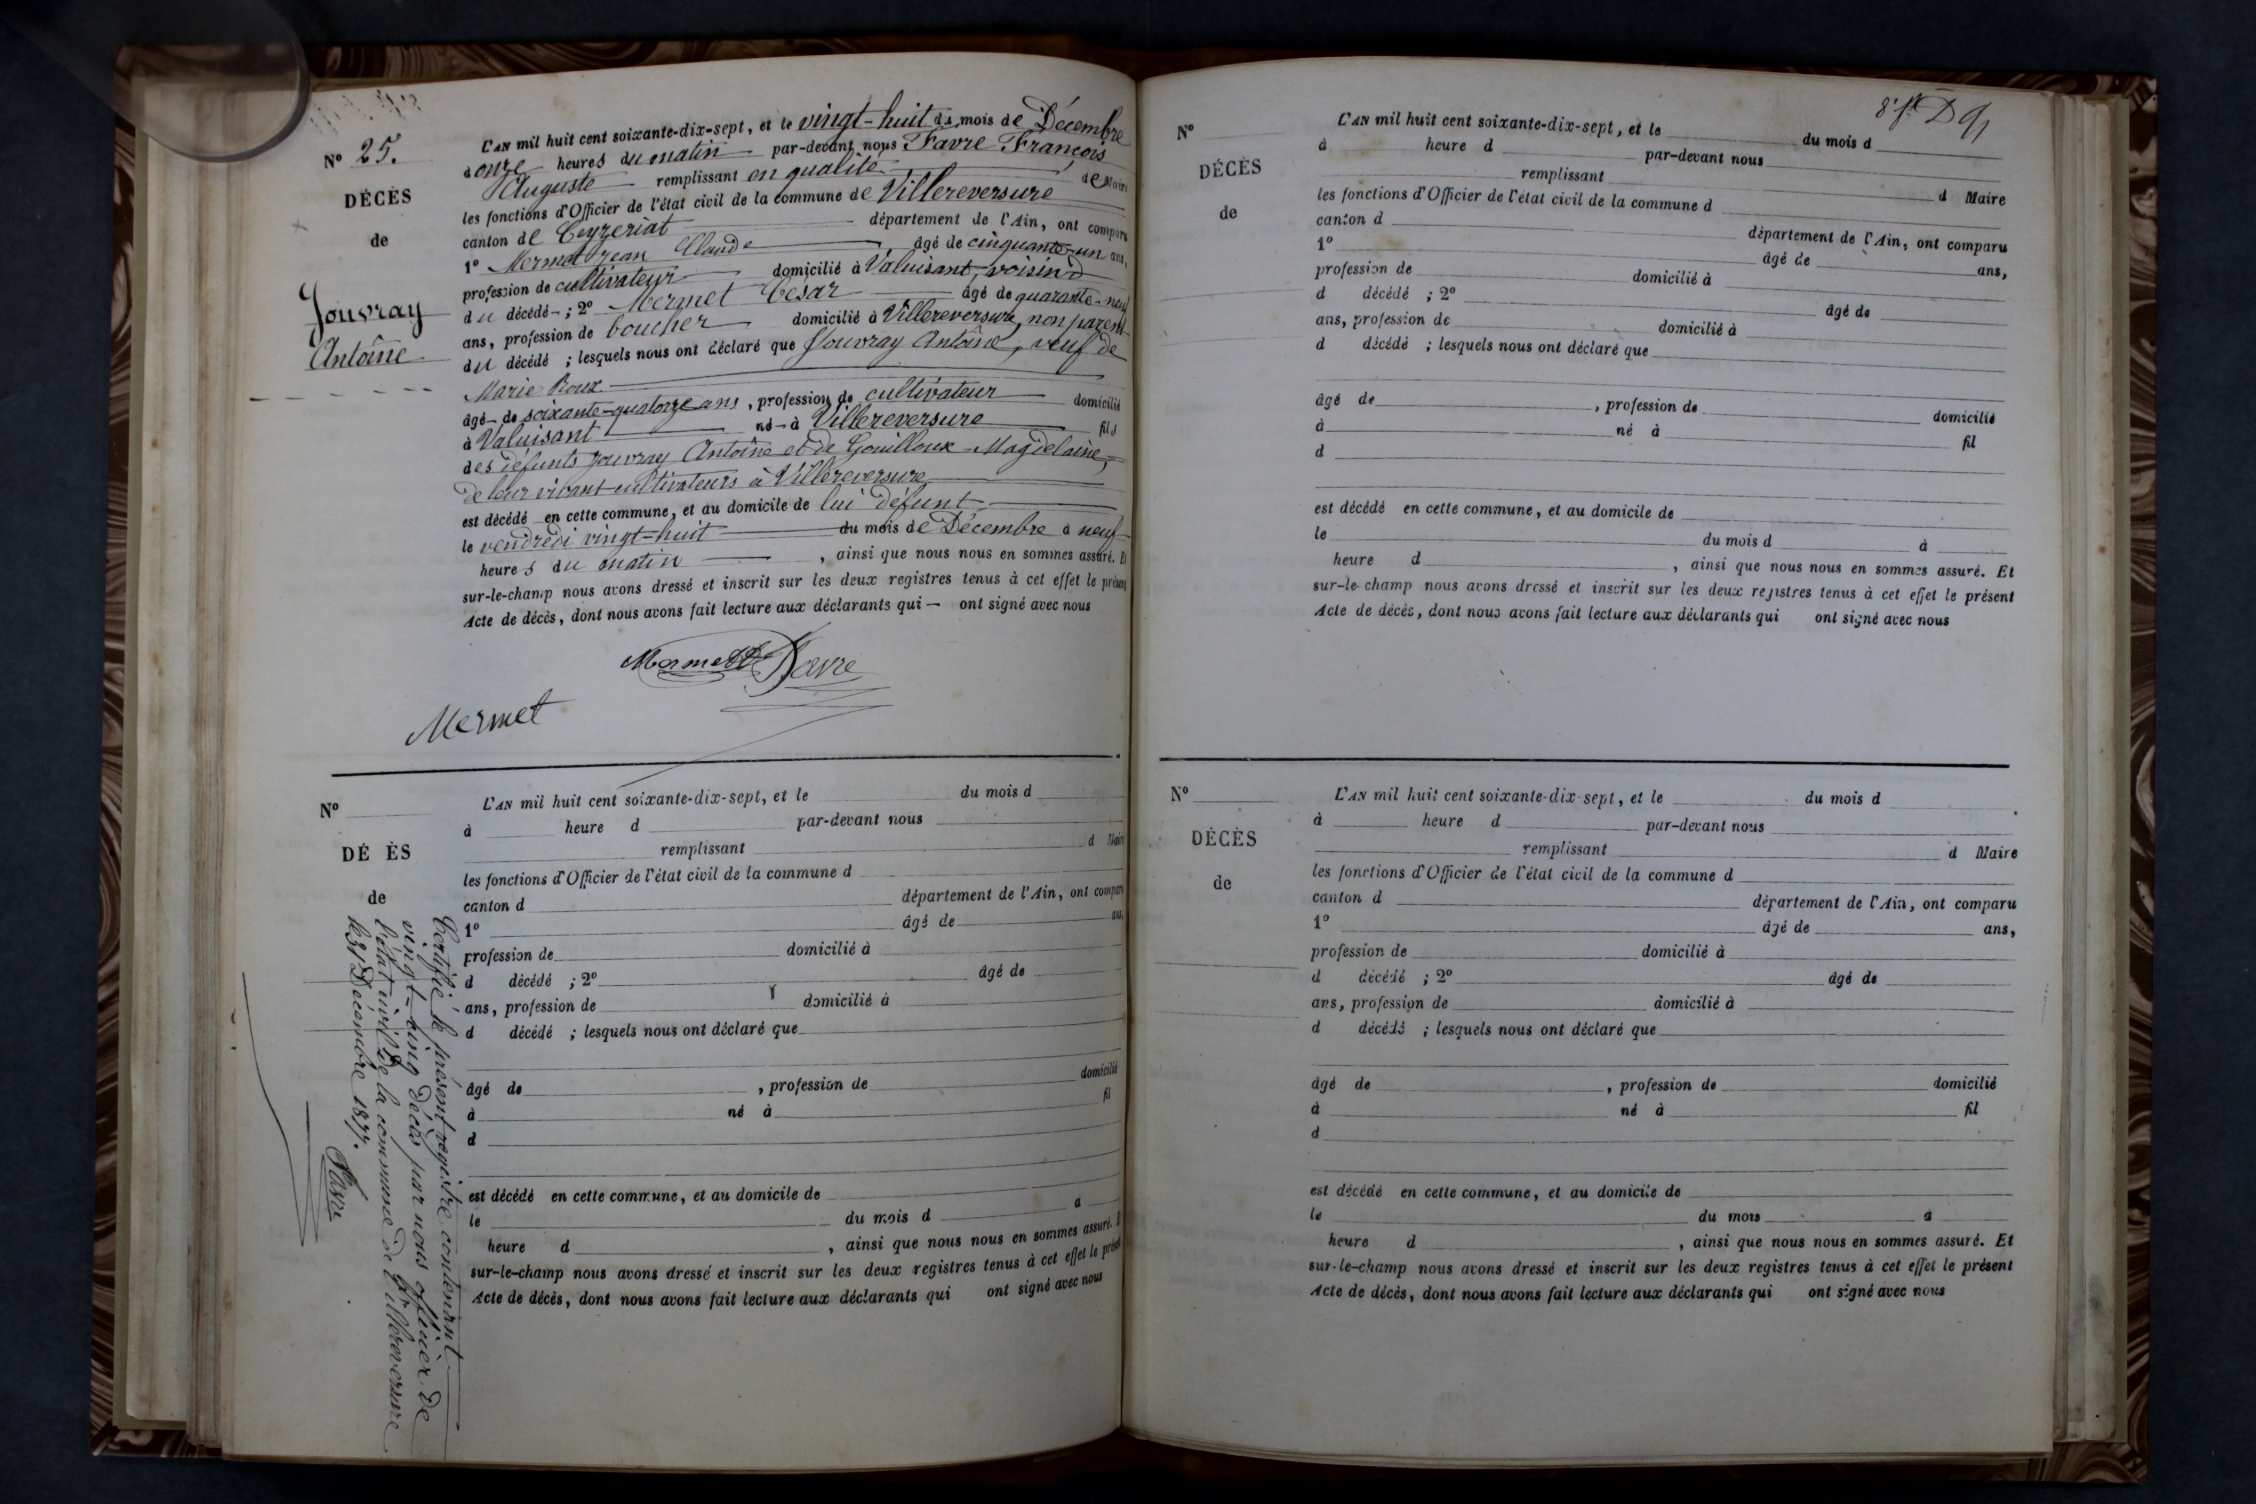 N° 25.
DÉCÈS
de
Jouvray
Antoine
L'AN mil huit cent soixante-dix-sept, et le vingt-huit du mois de Décembre
à onze heures du matin par-devant nous Favre François
Auguste remplissant en qualité de Maire
les fonctions d'Officier de l'état civil de la commune de Villereversure
canton de Ceyzériat département de l'Ain, ont comparu
1° Mermet Jean Claude âgé de cinquante-un ans,
profession de cultivateur domicilié à Valuisant, voisin d
du décédé ; 2° Mermet César âgé de quarante-neuf
ans, profession de boucher domicilié à Villereversure, non parent
du décédé ; lesquels nous ont déclaré que Jouvray Antoine, veuf de
Marie Roux
âgé de soixante-quatorze ans, profession de cultivateur domicilié
à Valuisant né à Villereversure fils
des défunts Jouvray Antoine et de Gouilloux Magdelaine,
de leur vivant cultivateurs à Villereversure
est décédé en cette commune, et au domicile de lui défunt
le vendredi vingt-huit du mois de Décembre à neuf
heures du matin, ainsi que nous nous en sommes assuré. Et
sur-le-champ nous avons dressé et inscrit sur les deux registres tenus à cet effet le présent
Acte de décès, dont nous avons fait lecture aux déclarants qui — ont signé avec nous
Mermet Favre
Mermet
N°
DÉ ÈS
de
L'AN mil huit cent soixante-dix-sept, et le du mois d
à heure d par-devant nous
remplissant d Maire
les fonctions d'Officier de l'état civil de la commune d
canton d département de l'Ain, ont comparu
1° âgé de ans,
profession de domicilié à
d décédé ; 2° âgé de
ans, profession de domicilié à
d décédé ; lesquels nous ont déclaré que
âgé de , profession de domicilié
à né à fil
d
est décédé en cette commune, et au domicile de
le du mois d à
heure d , ainsi que nous nous en sommes assuré. E
sur-le-champ nous avons dressé et inscrit sur les deux registres tenus à cet effet le présent
Acte de décès, dont nous avons fait lecture aux déclarants qui ont signé avec nous
Certifié le présent registre contenant
vingt-cinq décès par nous officier de
l'état civil de la commune de Villereversure
le 31 Décembre 1877.
Favre
8e ft D 9
N°
DÉCÈS
de
L'AN mil huit cent soixante-dix-sept, et le du mois d
à heure d par-devant nous
remplissant d Maire
les fonctions d'Officier de l'état civil de la commune d
canton d département de l'Ain, ont comparu
1° âgé de ans,
profession de domicilié à
d décédé ; 2° âgé de
ans, profession de domicilié à
d décédé ; lesquels nous ont déclaré que
âgé de , profession de domicilié
à né à fil
d
est décédé en cette commune, et au domicile de
le du mois d à
heure d , ainsi que nous nous en sommes assuré. Et
sur-le-champ nous avons dressé et inscrit sur les deux registres tenus à cet effet le présent
Acte de décès, dont nous avons fait lecture aux déclarants qui ont signé avec nous
N°
DÉCÈS
de
L'AN mil huit cent soixante-dix-sept, et le du mois d
à heure d par-devant nous
remplissant d Maire
les fonctions d'Officier de l'état civil de la commune d
canton d département de l'Ain, ont comparu
1° âgé de ans,
profession de domicilié à
d décédé ; 2° âgé de
ans, profession de domicilié à
d décédé ; lesquels nous ont déclaré que
âgé de , profession de domicilié
à né à fil
d
est décédé en cette commune, et au domicile de
le du mois à
heure d , ainsi que nous nous en sommes assuré. Et
sur-le-champ nous avons dressé et inscrit sur les deux registres tenus à cet effet le présent
Acte de décès, dont nous avons fait lecture aux déclarants qui ont signé avec nous